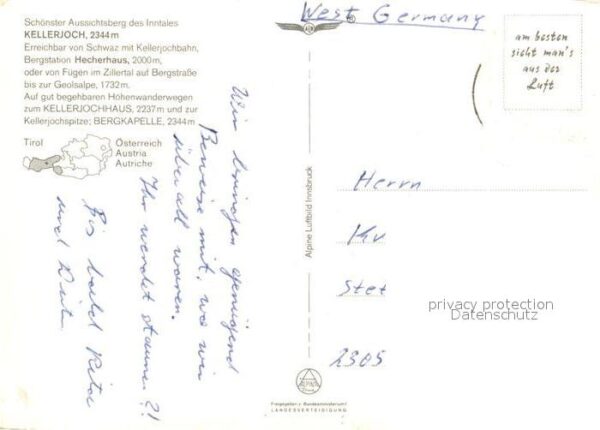 Schönster Aussichtsberg des Inntales
KELLERJOCH, 2344m
Erreichbar von Schwaz mit Kellerjochbahn,
Bergstation Hecherhaus, 2000m,
oder von Fügen im Zillertal auf Bergstraße
bis zur Geolsalpe, 1732m.
Auf gut begehbaren Höhenwanderwegen
zum KELLERJOCHHAUS, 2237m und zur
Kellerjochspitze; BERGKAPELLE, 2344m
Tirol
Österreich
Austria
Autriche
Wir bringen genügend
Beweise mit, wo wir
überall waren.
Ihr werdet staunen?!
Bis bald
und
Alpine Luftbild Innsbruck
ALPINE
Freigegeben v. Bundesministerium f.
LANDESVERTEIDIGUNG
West Germany
am besten
sieht man's
aus der
Luft
Herrn
Kv
Stet
2305
privacy protection
Datenschutz